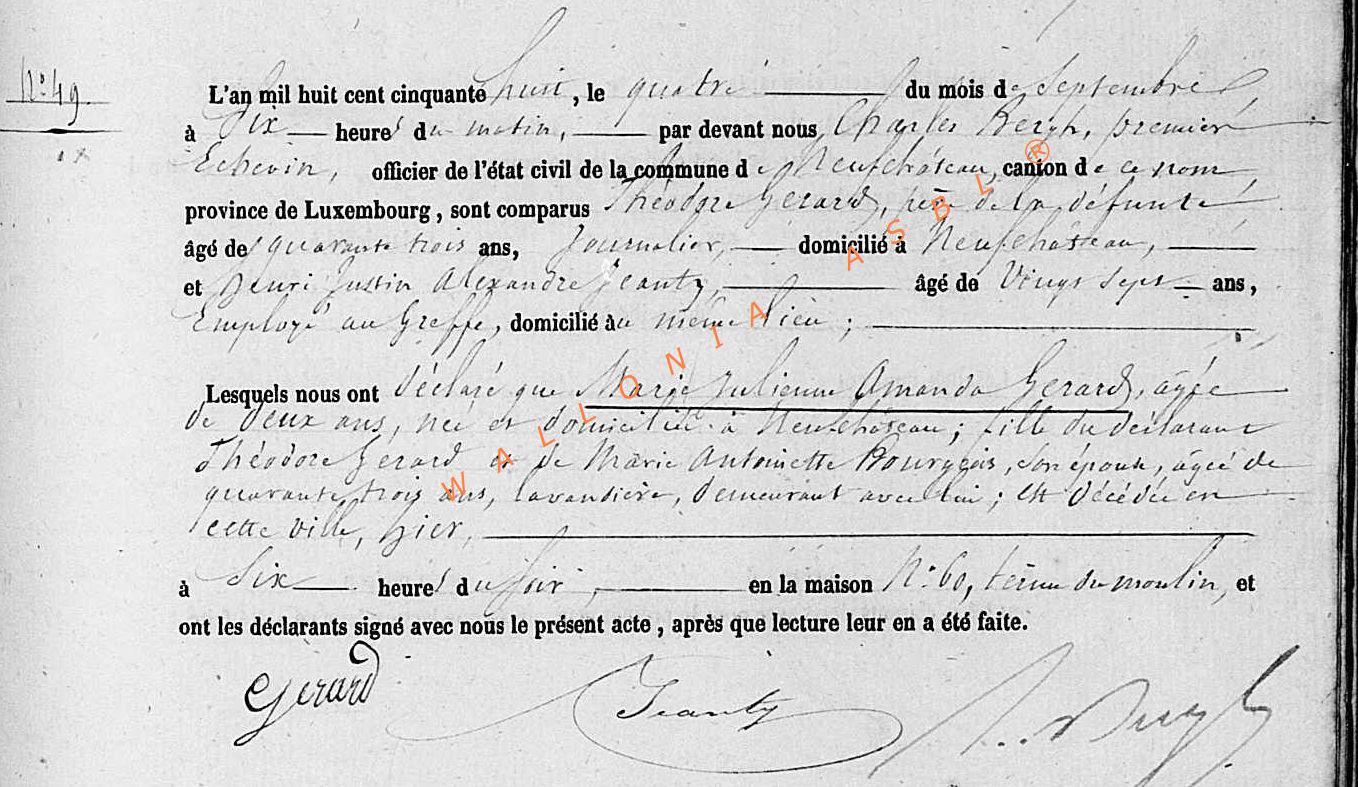 N° 49
L'an mil huit cent cinquante huit, le quatre du mois de Septembre
à Dix heures du matin, par devant nous Charles Bergh, premier
Echevin, officier de l'état civil de la commune de Neufchâteau, canton de ce nom
province de Luxembourg, sont comparus Théodore Gerard, père de la défunte
âgé de quarante trois ans, Journalier, domicilié à Neufchâteau,
et Henri Justin Alexandre Jeanty, âgé de Vingt sept ans,
Employé au Greffe, domicilié au même lieu ;
Lesquels nous ont déclaré que Marie Julienne Amanda Gerard, âgée
de deux ans, née et domiciliée à Neufchâteau ; fille du déclarant
Théodore Gerard et de Marie Antoinette Bourgeois, son épouse, âgée de
quarante trois ans, lavandière, demeurant avec lui ; est décédée en
cette ville, hier,
à Six heures du soir, en la maison N° 60, du moulin, et
ont les déclarants signé avec nous le présent acte, après que lecture leur en a été faite.
Gerard Jeanty
WALLONIA ASBL ®